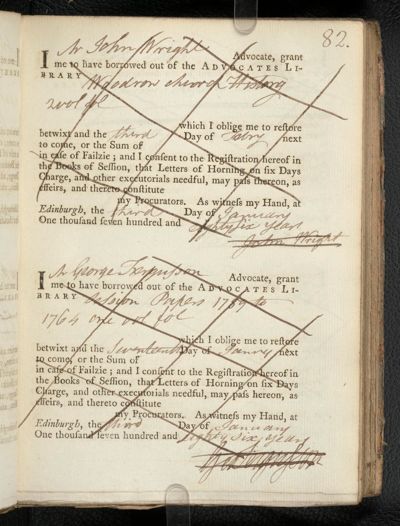 82.
I Mr John Wright Advocate, grant
me to have borrowed out of the ADVOCATES LI-
BRARY Woodrow church History
2 vol fol
which I oblige me to restore
betwixt and the third Day of febry next
to come, or the Sum of
in case of Failzie; and I consent to the Registration hereof in
the Books of Session, that Letters of Horning on six Days
Charge, and other executorials needful, may pass thereon, as
effeirs, and thereto constitute
my Procurators. As witness my Hand, at
Edinburgh, the third Day of January
One thousand seven hundred and eighty six years
John Wright
I Mr George Fergusson Advocate, grant
me to have borrowed out of the ADVOCATES LI-
BRARY Session Papers to
1764 one vol fol
which I oblige me to restore
betwixt and the Seventeenth Day of Janry next
to come, or the Sum of
in case of Failzie; and I consent to the Registration hereof in
the Books of Session, that Letters of Horning on six Days
Charge, and other executorials needful, may pass hereon, as
effeirs, and thereto constitute
my Procurators. As witness my Hand, at
Edinburgh, the third Day of January
One thousand seven hundred and eighty six years